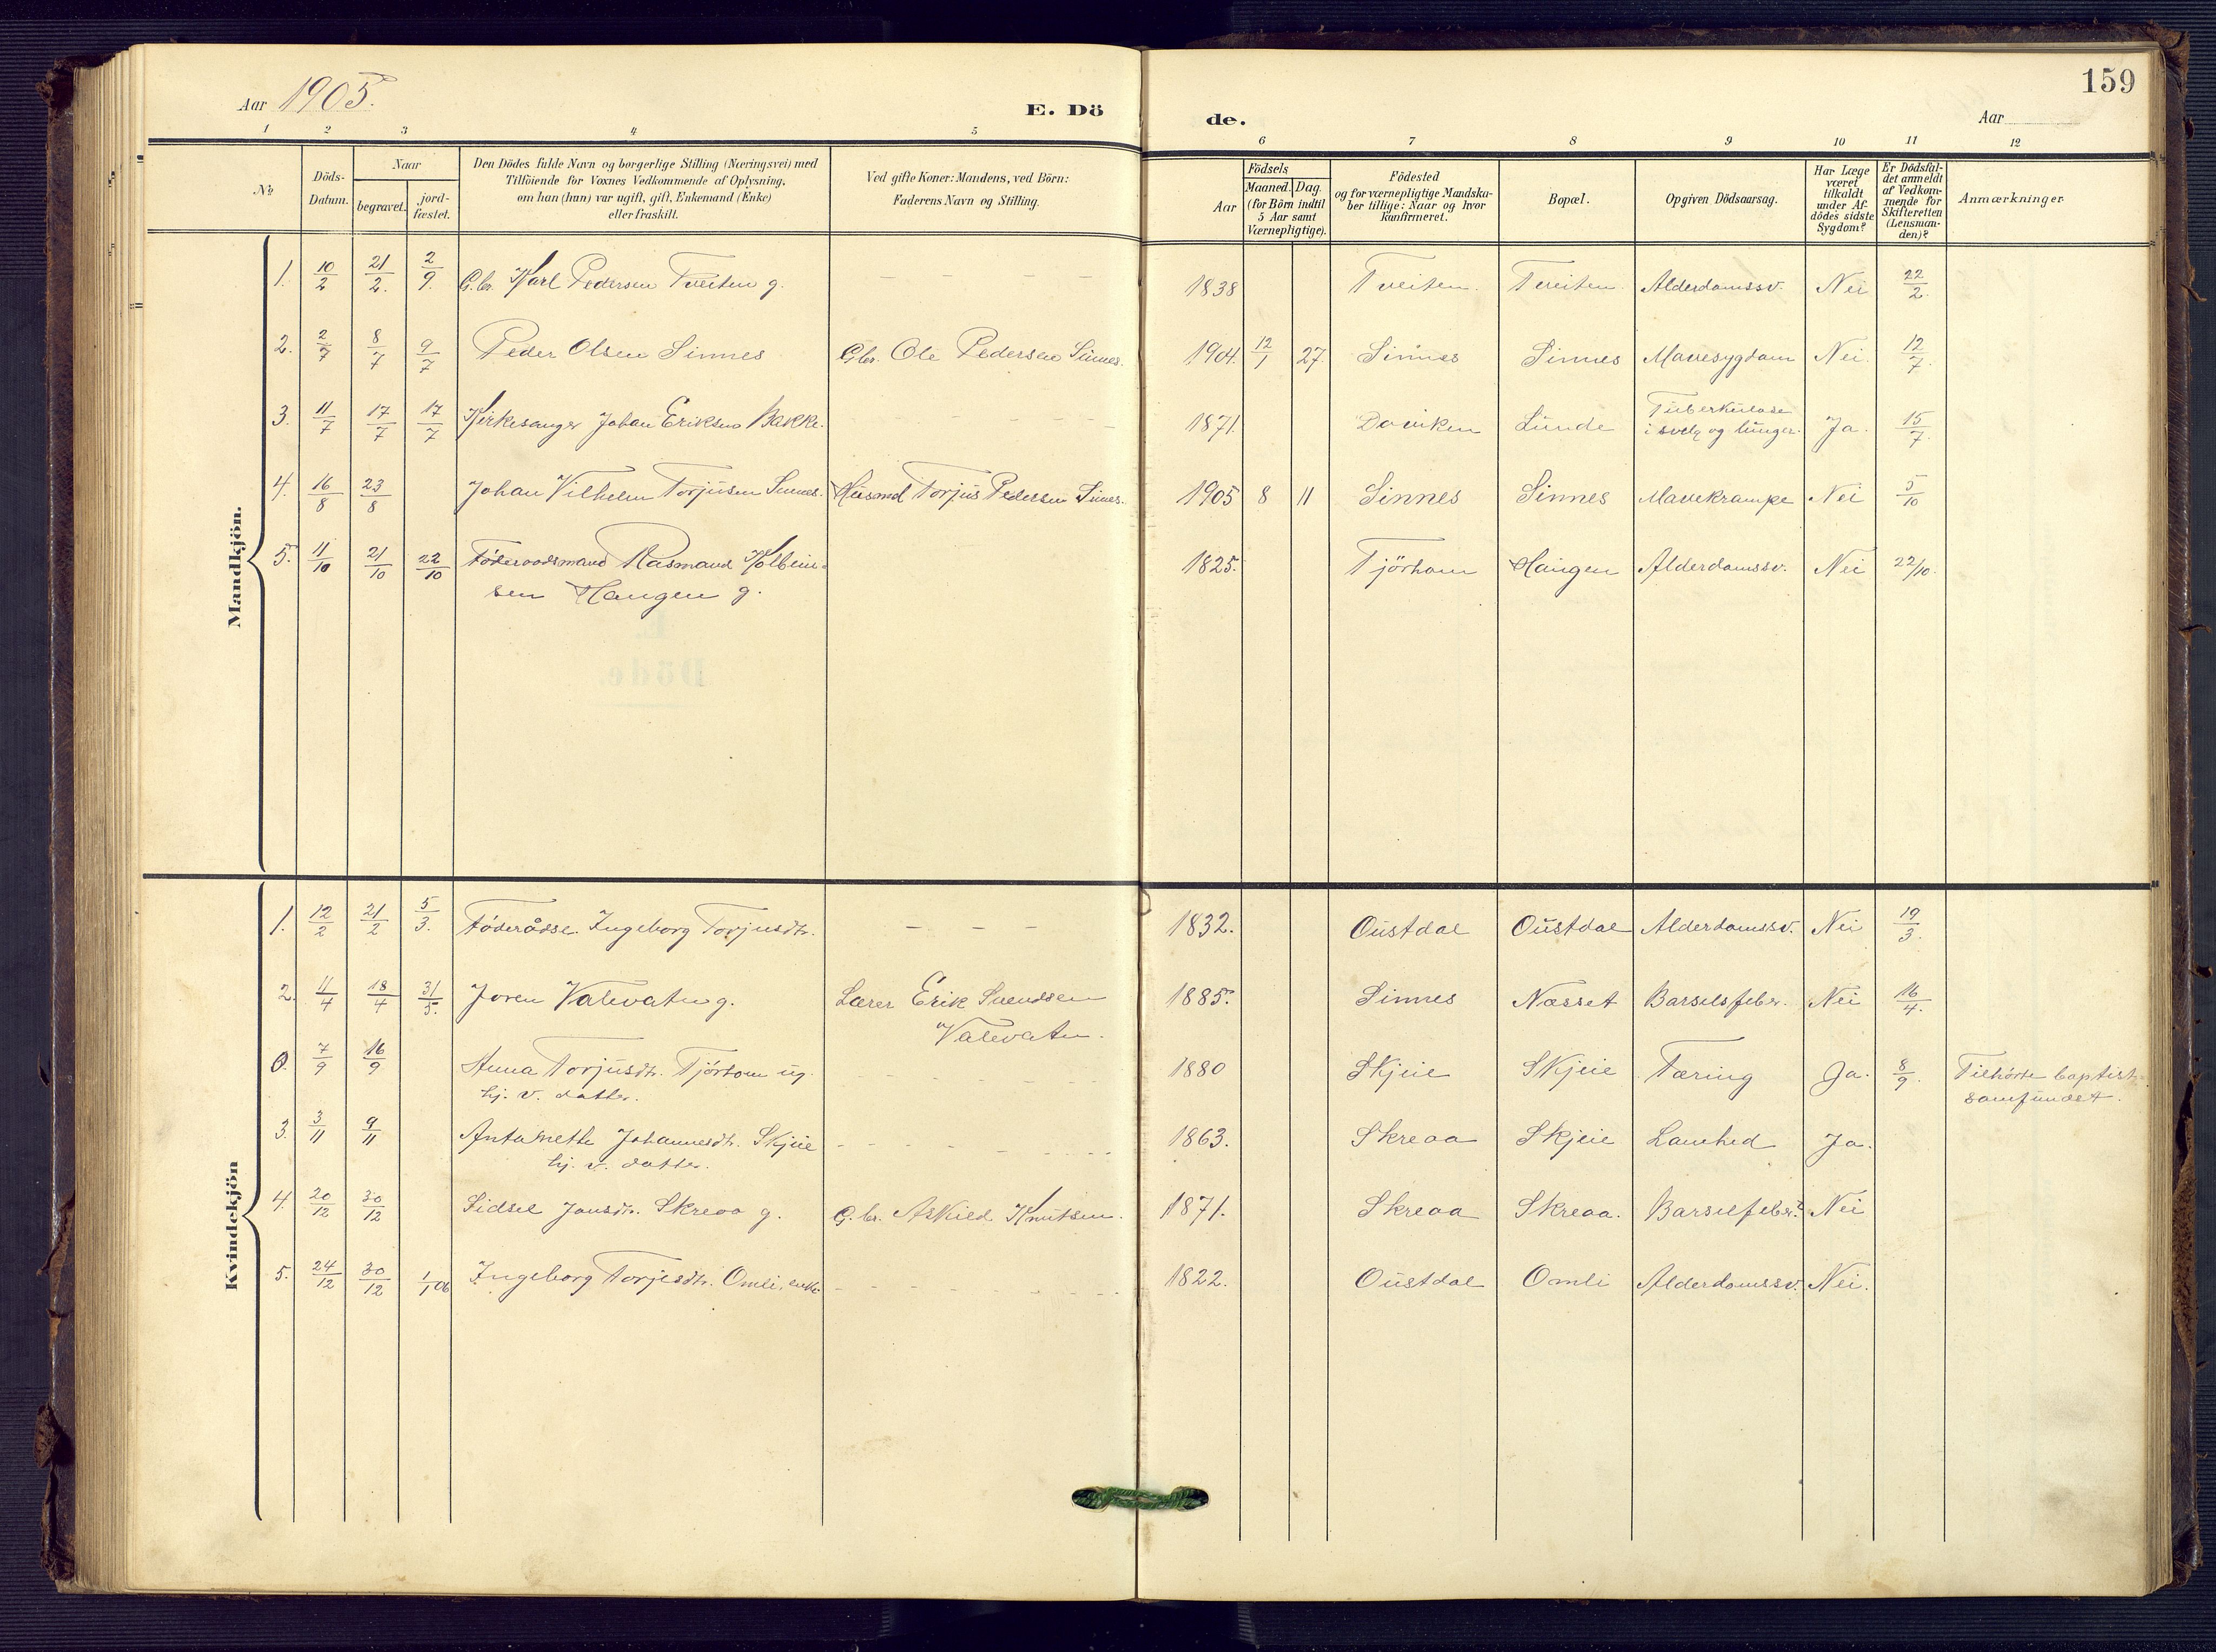 159
Aar 1905.
E. Dö de.
Aar
1 2 3 4 5 6 7 8 9 10 11 12
No
Döds-
Datum.
Naar
begravet.
jord-
fæstet.
Den Dödes fulde Navn og borgerlige Stilling (Næringsvei) med
Tilföiende for Voxnes Vedkommende af Oplysning,
om han (hun) var ugift, gift, Enkemand (Enke)
eller fraskilt.
Ved gifte Koner: Mandens, ved Börn:
Faderens Navn og Stilling.
Födsels
Aar
Maaned. Dag.
(for Börn indtil
5 Aar samt
Værnepligtige).
Födested
og for værnepligtige Mandska-
ber tillige: Naar og hvor
konfirmeret.
Bopæl.
Opgiven Dödsaarsag.
Har Læge
været
tilkaldt
under Af-
dödes sidste
Sygdom?
Er Dödsfal-
det anmeldt
af Vedkom-
mende for
Skifteretten
(Lensman-
den)?
Anmærkninger
Mandkjön.
1. 10/2 21/2. 2/9. G.br. Karl Pedersen Tveiten g. – – – – 1838 Tveiten. Tveiten Alderdomssv. Nei 22/2.
2. 2/7 8/7 9/7 Peder Olsen Sinnes Gbr. Ole Pedersen Sinnes. 1904. 12/1 27. Sinnes Sinnes Mavesygdom Nei. 12/7.
3. 11/7 17/7 17/7 Kirkesanger Johan Eriksen Bakke. – – – – 1871. Daviken Lunde Tuberkulose
i svelg og lunger. Ja. 15/7.
4. 16/8 23/8 Johan Vilhelm Torjusen Sinnes. Husmd Torjus Pedersen Sinnes. 1905 8 11 Sinnes Sinnes Mavekrampe Nei 5/10
5. 11/10 21/10 22/10 Föderaadsmand Rasmund Kolbein-
sen Haugen g. 1825. Tjörhom Haugen Alderdomssv. Nei 22/10.
Kvindekjön
1. 12/2 21/2 5/3. Föderådse. Ingeborg Torjusdtr. – – – 1832. Oustdal Oustdal Alderdomssv. Nei 19/3.
2. 11/4 18/4 31/5. Joren Valevatn g. Lærer Erik Svendsen
Valevatn. 1885. Sinnes Næsset Barselsfeber. Nei 16/4.
0. 7/9 16/9 Anna Torjusdtr. Tjörhom ug.
hj. v. datter. – – – – 1880 Skjeie Skjeie Tæring Ja. 8/9. Tilhörte baptist-
samfundet.
3. 3/11 9/11 Antonette Johannesdtr. Skjeie
hj. v. datter. – – – – 1863. Skreaa Skjeie Lamhed Ja.
4. 20/12 30/12 Sidsel Jonsdtr. Skreaa g. G.br. Askild Knutsen. 1871. Skreaa Skreaa. Barselfeber? Nei
5. 24/12 30/12 1/1 06 Ingeborg Torjesdtr. Omli, enke. – – – – 1822. Oustdal Omli Alderdomssv. Nei.